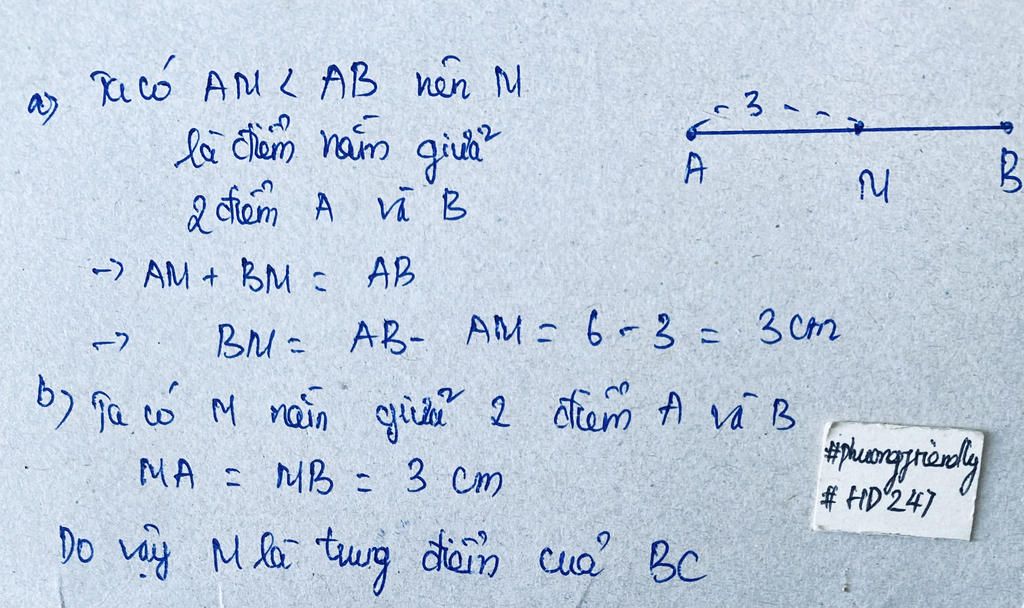 a) Ta có AM < AB nên M
là điểm nằm giữa
2 điểm A và B
-> AM + BM = AB
-> BM = AB - AM = 6 - 3 = 3 cm
b) Ta có M nằm giữa 2 điểm A và B
MA = MB = 3 cm
Do vậy M là trung điểm của BC
3
A M B
#phuongfriendly
# HD247